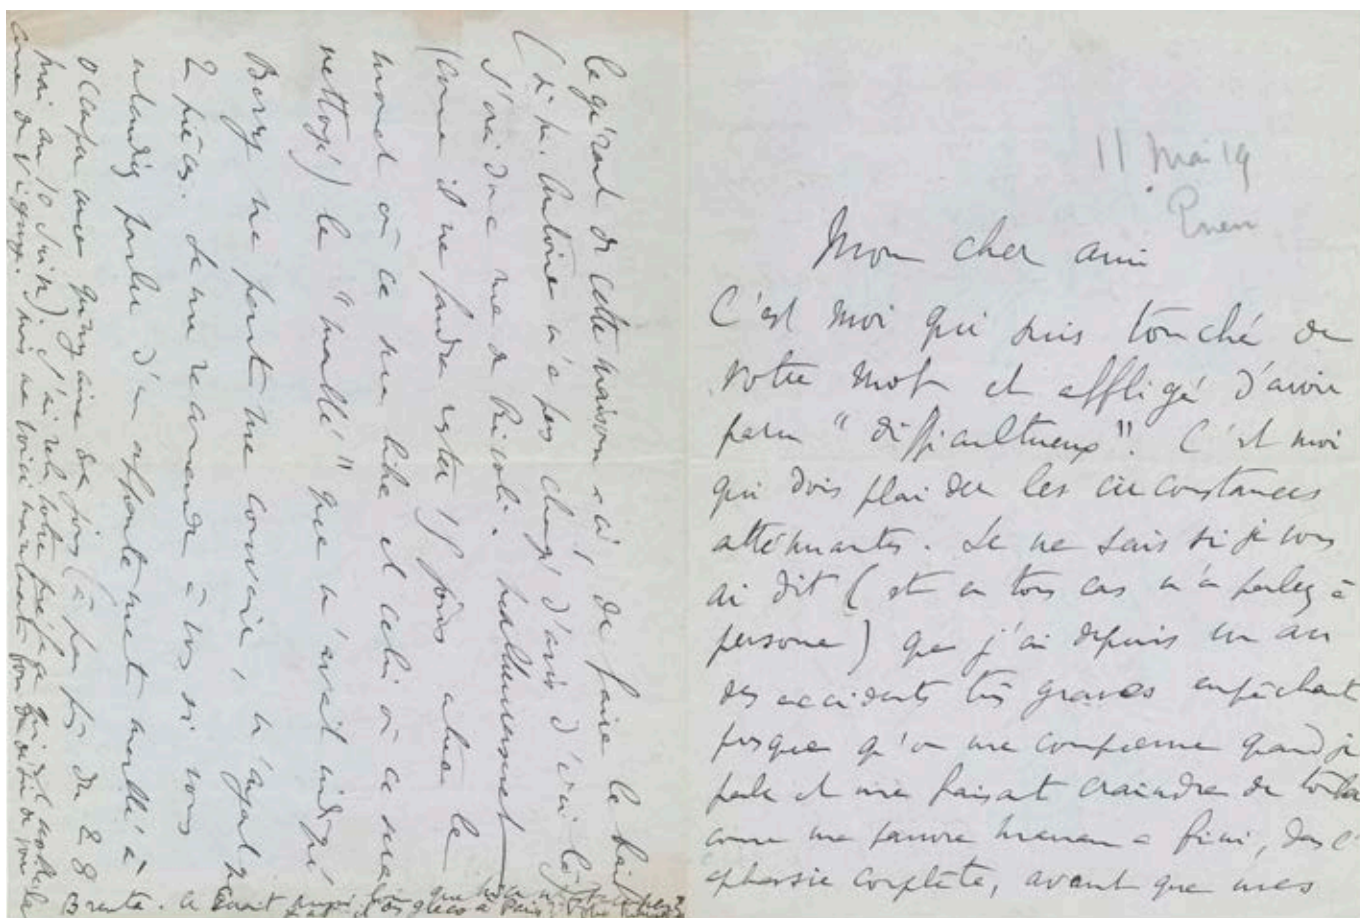 11 Mai 19
Pneu
Mon cher ami
C'est moi qui suis touché de
votre mot et affligé d'avoir
paru "difficultueux". C'est moi
qui dois plaider les circonstances
atténuantes. Je ne sais si je vous
ai dit (et en tous cas n'en parlez à
personne) que j'ai depuis un an
des accidents très graves empêchant
presque qu'on me comprenne quand je
parle et me faisant craindre de tomber
comme ma pauvre maman a fini, dans l'
aphasie complète, avant que mes
le gérant de cette maison-ci, de faire le bail
(si M. Antoine n'a pas changé d'avis d'ici là)
J'irai rue de Rivoli. Malheureusement
(comme il me faudra rester 15 jours entre le
moment où ce sera libre et celui où ce sera
nettoyé) le "meublé" que m'avait indiqué
Berry ne peut me convenir, n'ayant que
2 pièces. Je me recommande à vous si vous
entendiez parler d'un appartement meublé à
occuper une quinzaine de jours (à peu près du 28
mai au 10 Juin). J'ai relu votre préface qui est
comme du Vigny. Mais me voici maintenant